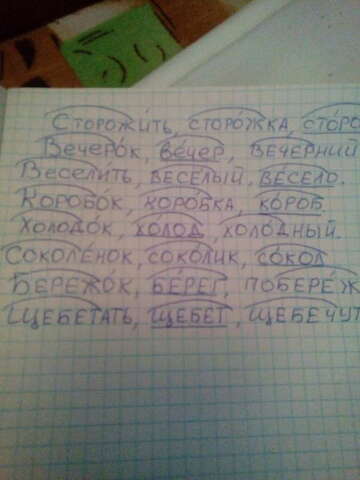 Сторожи́ть, сторо́жка, сто́ро
Вечеро́к, ве́чер, вечерний
Весели́ть, весёлый, ве́село.
Коробо́к, коро́бка, ко́роб
Холодо́к, хо́лод, холо́дный.
Соколёнок, соко́лик, со́кол
Бережо́к, бе́рег, побере́ж
Щебета́ть, ще́бет, щебечут